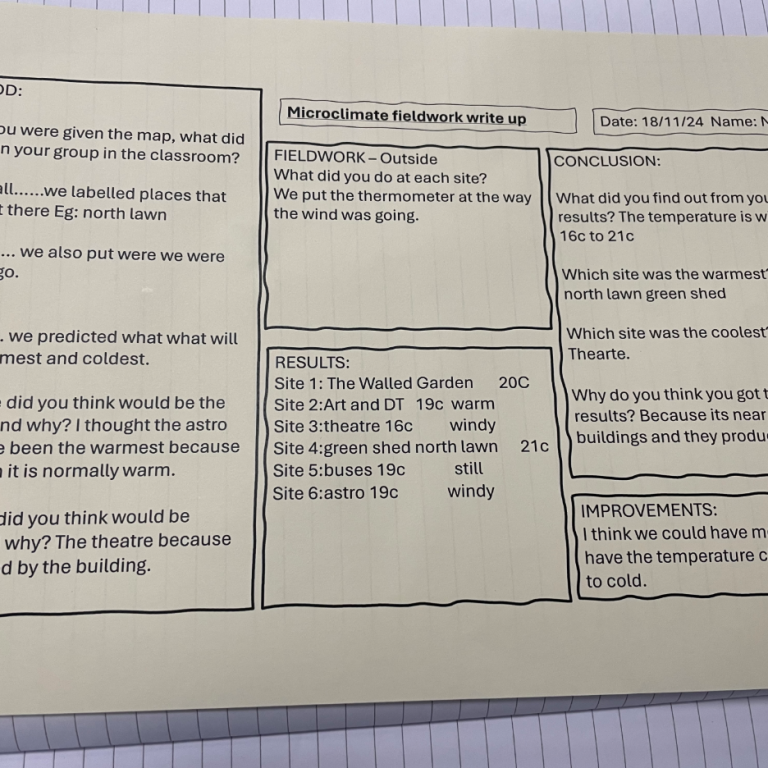 OD:
ou were given the map, what did
n your group in the classroom?
all......we labelled places that
t there Eg: north lawn
.... we also put were we were
go.
. we predicted what what will
mest and coldest.
did you think would be the
nd why? I thought the astro
e been the warmest because
it is normally warm.
did you think would be
why? The theatre because
d by the building.
Microclimate fieldwork write up
FIELDWORK – Outside
What did you do at each site?
We put the thermometer at the way
the wind was going.
RESULTS:
Site 1: The Walled Garden 20C
Site 2:Art and DT 19c warm
Site 3:theatre 16c windy
Site 4:green shed north lawn 21c
Site 5:buses 19c still
Site 6:astro 19c windy
Date: 18/11/24 Name: N
CONCLUSION:
What did you find out from you
results? The temperature is w
16c to 21c
Which site was the warmest?
north lawn green shed
Which site was the coolest?
Thearte.
Why do you think you got t
results? Because its near
buildings and they produ
IMPROVEMENTS:
I think we could have m
have the temperature c
to cold.